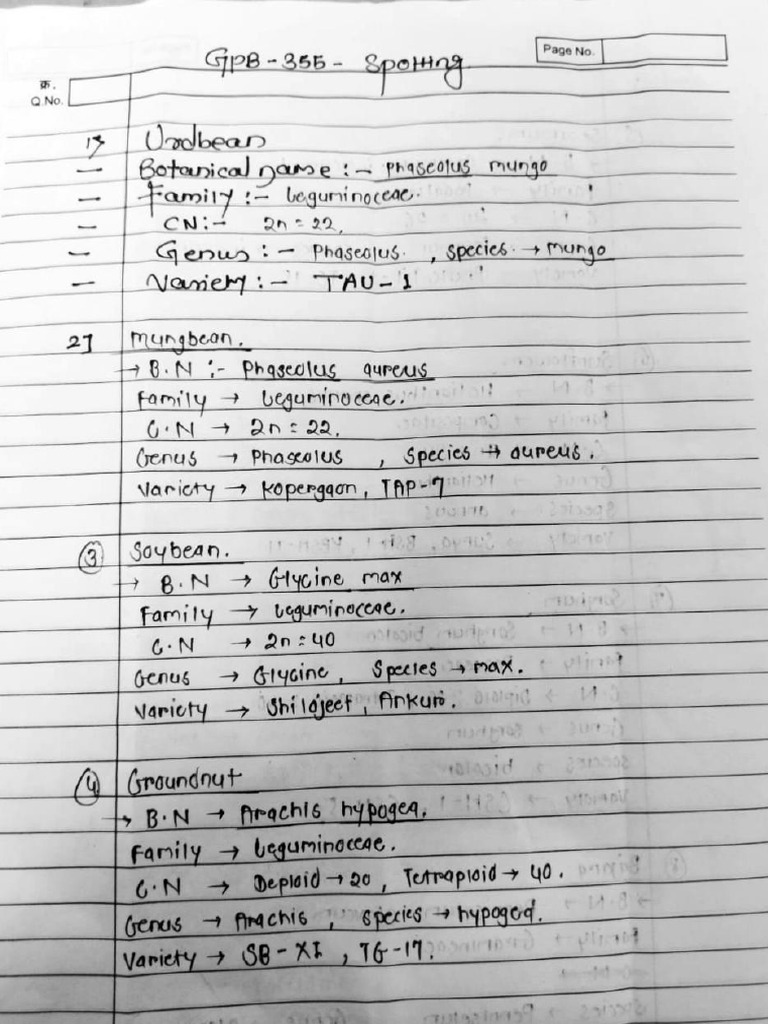 GPB-355 - Spotting
Page No.
क्र.
Q.No.
1] Urdbean
- Botanical name :- Phaseolus mungo
- Family :- Leguminoceae.
- CN :- 2n = 22,
- Genus :- Phaseolus. , species. → mungo
- Variety :- TAU-1
2] Mungbean.
→ B.N :- Phaseolus aureus
Family → Leguminoceae.
C.N → 2n = 22,
Genus → Phaseolus , Species → aureus.
Variety → Kopergaon, TAP-7
③ Soybean.
→ B.N → Glycine max
Family → Leguminoceae.
C.N → 2n = 40
Genus → Glycine, Species → max.
Variety → Shilajeet, Ankur.
④ Groundnut
→ B.N → Arachis hypogea.
Family → Leguminoceae.
C.N → Deploid → 20, Tetraploid → 40.
Genus → Arachis, species → hypogea.
Variety → SB-XI, TG-17.